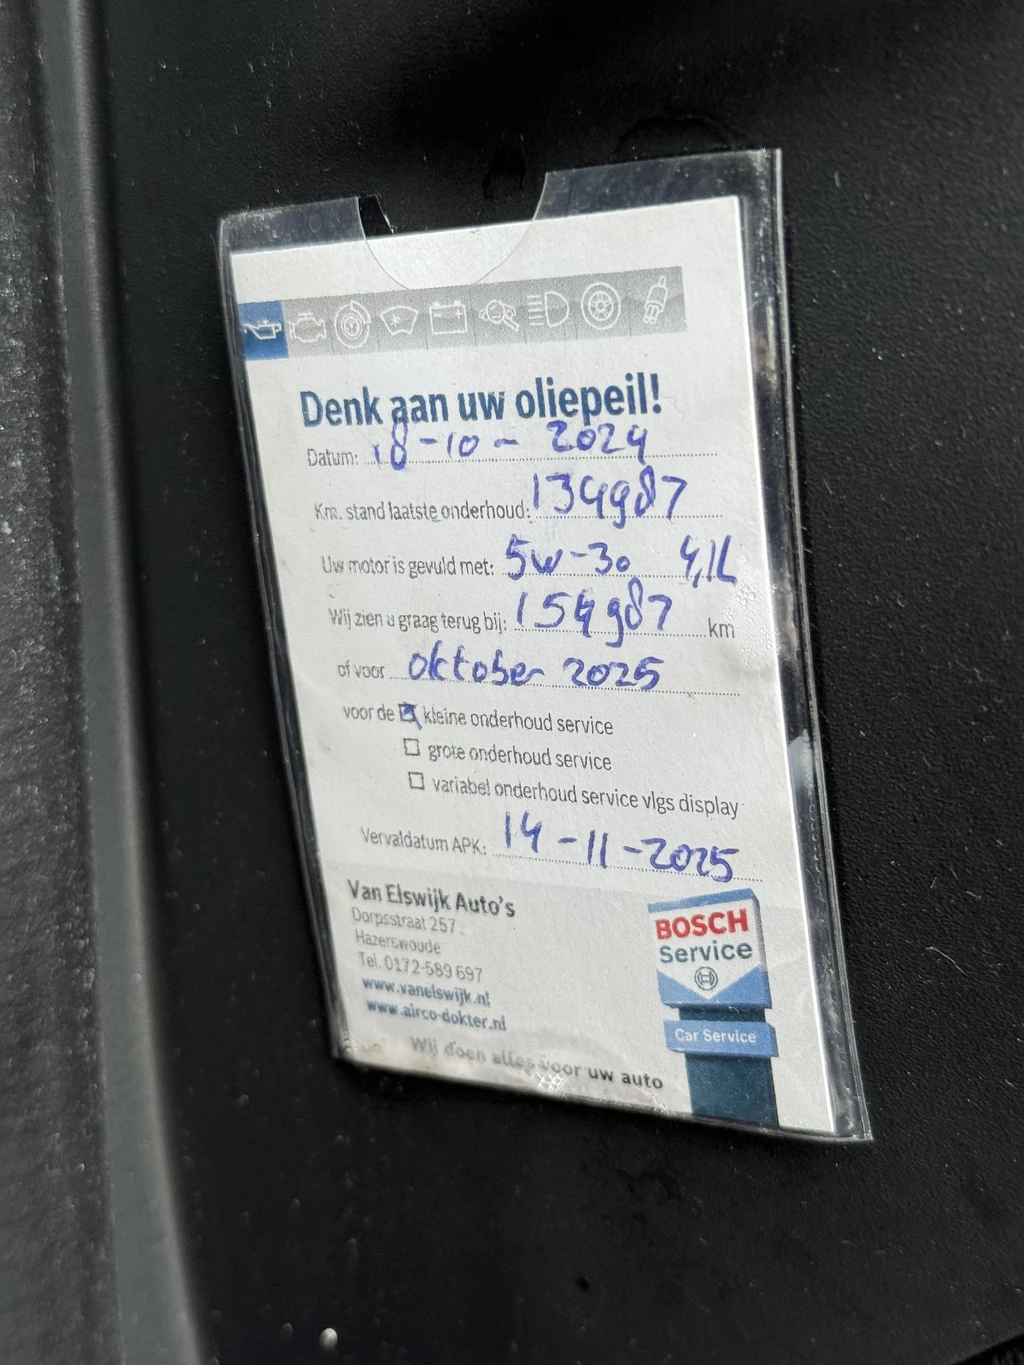 Denk aan uw oliepeil!
Datum: 18-10-2024
Km. stand laatste onderhoud: 134987
Uw motor is gevuld met: 5w-30 4,1L
Wij zien u graag terug bij: 154987 km
of voor oktober 2025
voor de ☒ kleine onderhoud service
☐ grote onderhoud service
☐ variabel onderhoud service vlgs display
Vervaldatum APK: 14-11-2025
Van Elswijk Auto's
Dorpsstraat 257
Hazerswoude
Tel. 0172-589 697
www.vanelswijk.nl
www.airco-dokter.nl
Wij doen alles voor uw auto
BOSCH
Service
Car Service